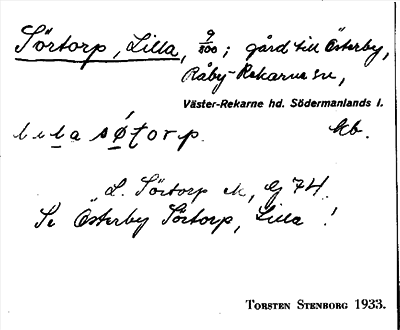 Sörtorp, Lilla, 9/800; gård till Österby,
Råby-Rekarne sn,
Väster-Rekarne hd. Södermanlands l.
lila søtorp. kb.
L. Sörtorp ek, G 74.
Se Österby Sörtorp, Lilla!
TORSTEN STENBORG 1933.